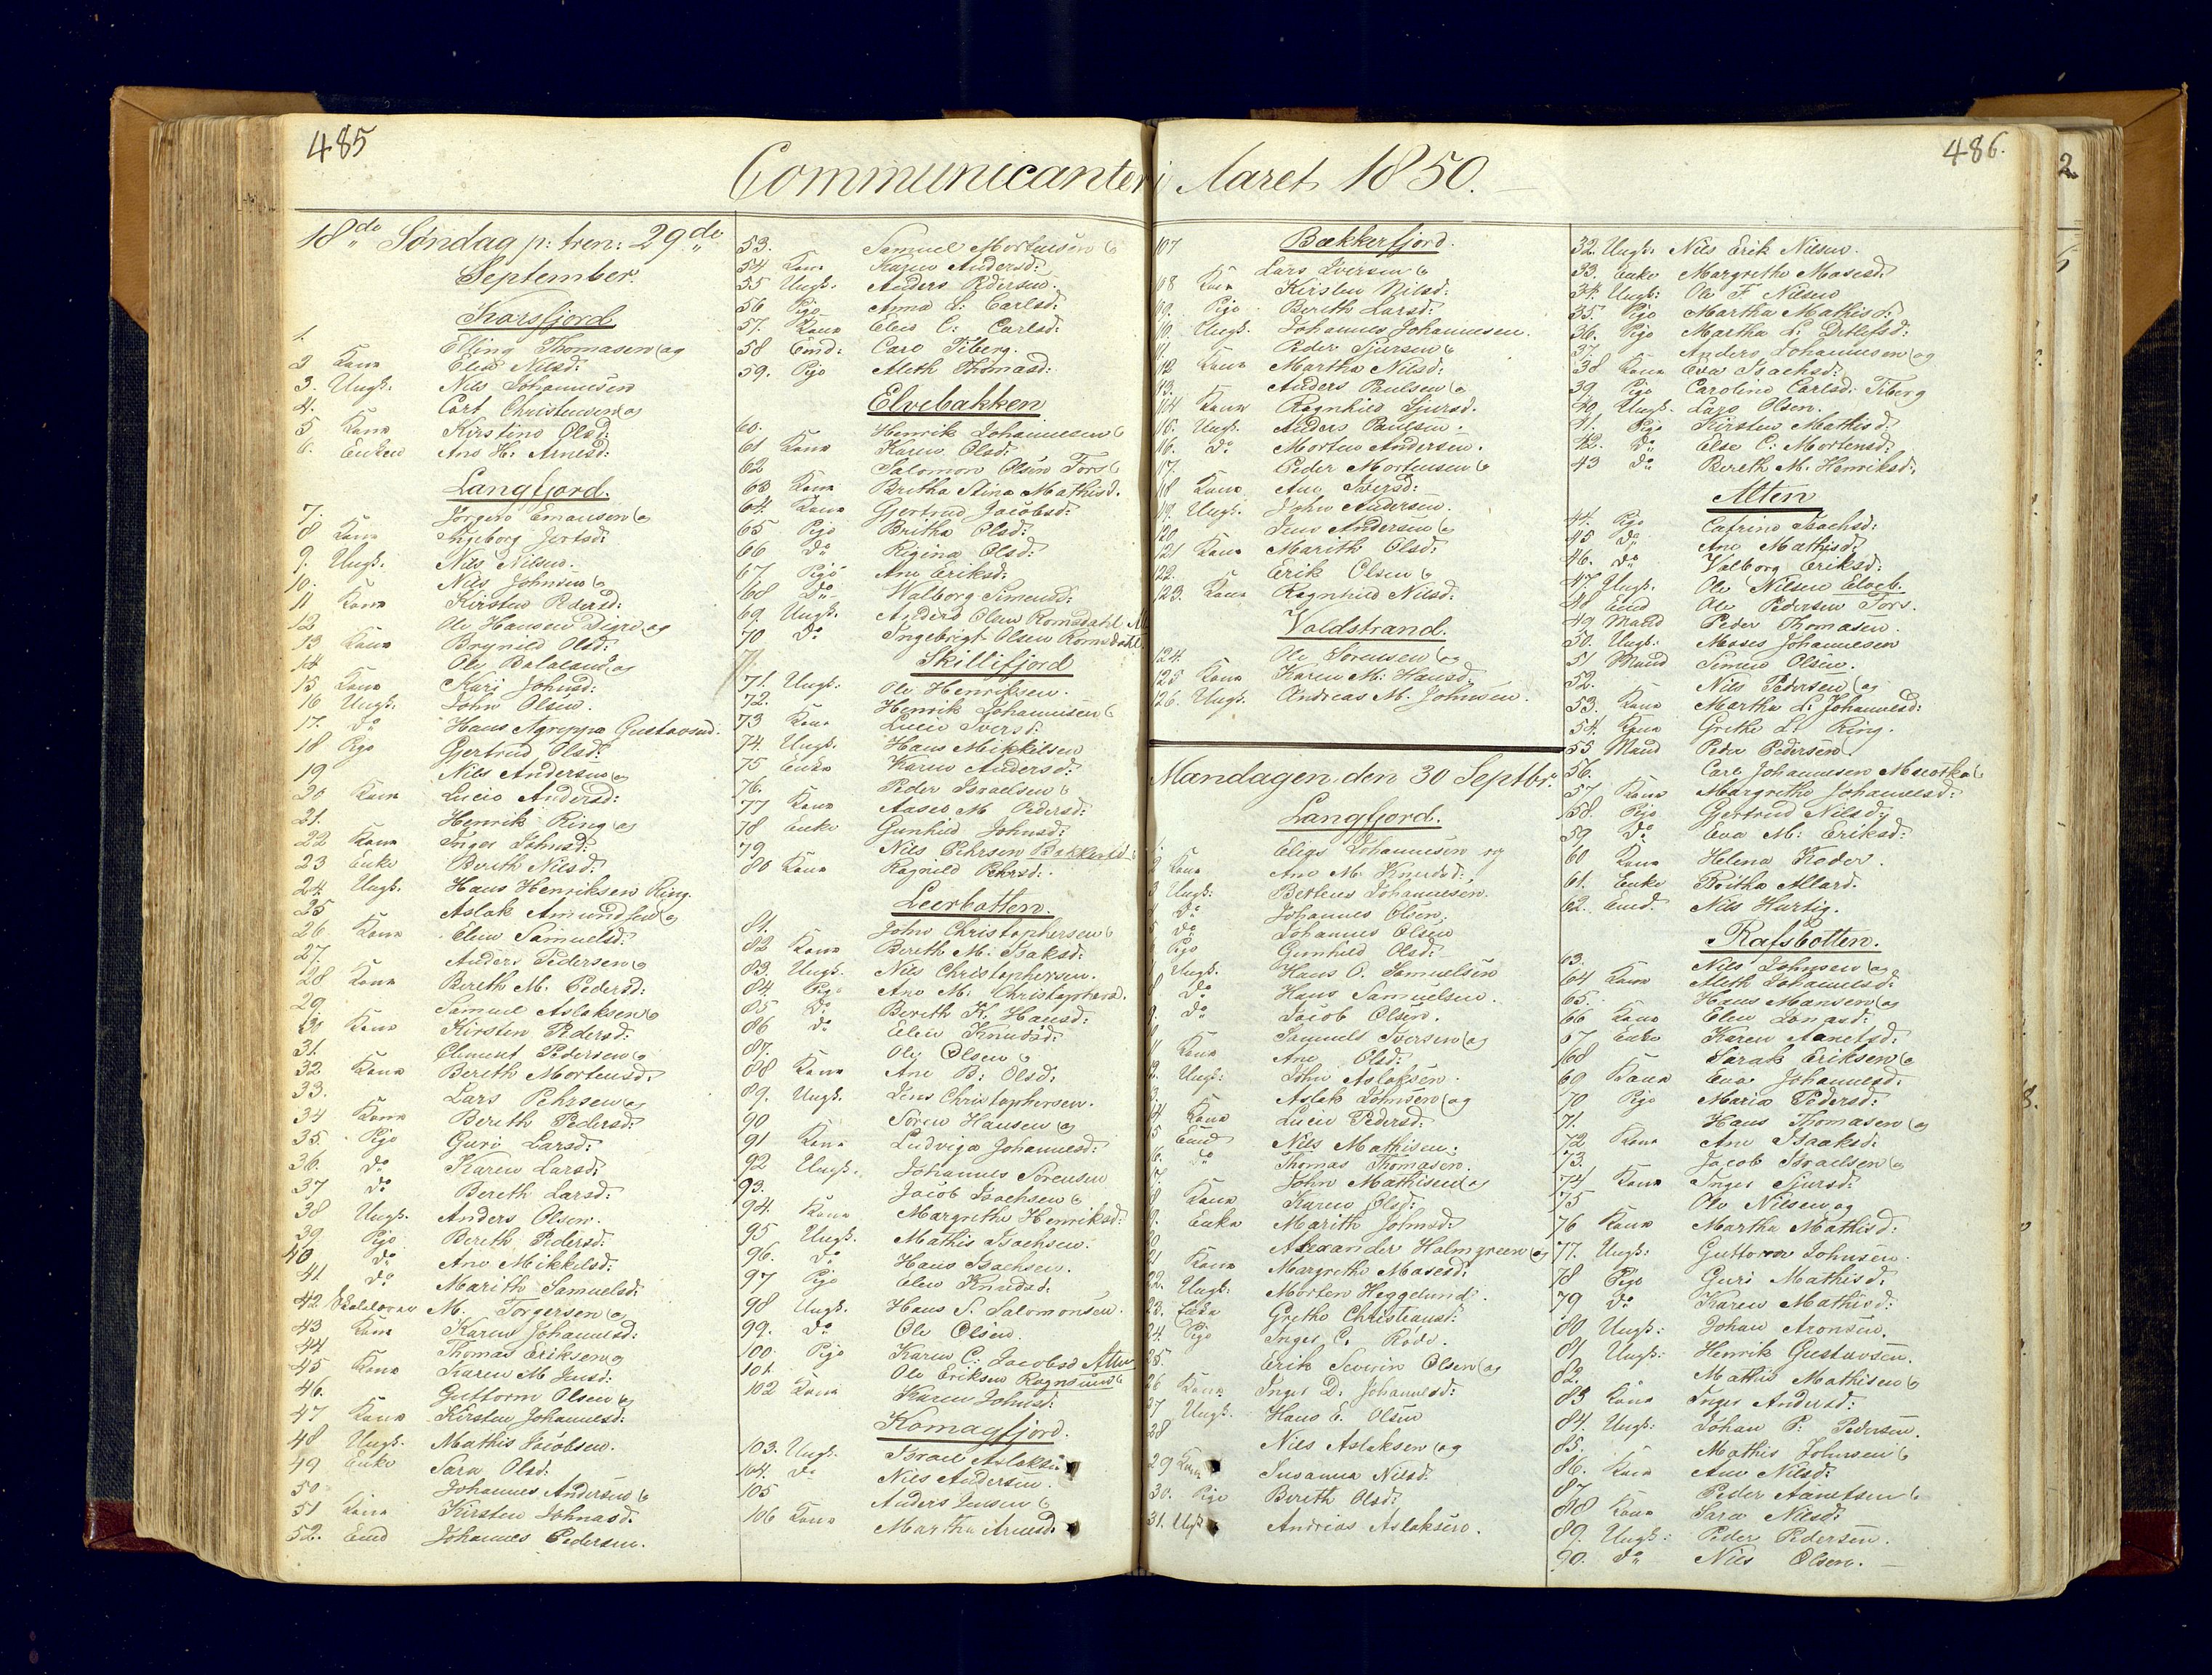 485
Communicanter i Aaret 1850.
486.
2
18de Søndag p: tren: 29de
September.
Korsfjord
1. Elling Thomasen og
2 Kone Elise Nilsd:
3. Ungk. Nils Johannesen
4. Cort Christensen og
5 Kone Kirstine Olsd:
6. Enken Ane H: Arnesd:
Langfjord.
7. Jørgen Emausen og
8 Kone Ingeborg
9. Ungk. Nils Nilsen.
10. Nils Johnsen og
11 Kone Kirsten Pedersd:
12 Ole Hansen Digre og
13 Kone Brynild Olsd:
14 Ole Balaland og
15 Kone Kari Johnsd:
16 Ungk. John Olsen.
17. do Hans Agreppa Gustavsend.
18 Pige Gjertrud Olsd:
19 Nils Andersen og
20 Kone Lucie Andersd:
21. Henrik Ring og
22 Kone Inger Johnsd:
23 Enke Berith Nilsd:
24. Ungk. Hans Henriksen Ring.
25 Aslak Amundsen og
26 Kone Elen Samuelsd:
27. Anders Pedersen og
28 Kone Bereth M. Pedersd:
29. Samuel Aslaksen og
30 Kone Kirsten Pedersd:
31. Clement Pedersen og
32. Kone Bereth Mortensd:
33. Lars Pehrsen og
34 Kone Bereth Pedersd:
35. Pige Guri Larsd:
36. do Karen Larsd:
37 do Bereth Larsd:
38 Ungk. Anders Olsen.
39. Pige Bereth Pedersd:
40 do Ane Mikkelsd:
41. do Marith Samuelsd:
42. M. Torgersen og
43 Kone Karen Johannesd:
44 Thomas Eriksen og
45 Kone Karen M. Jensd:
46. Guttorm Olsen og
47 Kone Kirsten Johannesd:
48 Ungk. Mathis Jacobsen.
49 Enke Sara Olsd.
50 Johannes Andersen og
51 Kone Kirsten Johnasd.
52. Emd Johannes Pedersen.
53. Samuel Mortensen og
54 Kone Karen Andersd:
55 Ungk. Anders Pedersen.
56 Pige Anna L: Carlsd:
57. Kone Elen C: Carlsd:
58 Emd: Carl Tiberg.
59. Pige Aleth Thomasd:
Elvebakken
60. Henrik Johannesen og
61 Kone Karen Olsd:
62 Salomon Olsen Fors og
63 Kone Britha Stina Mathisd.
64. Kone Gjertrud Jacobsd:
65 Pige Britha Olsd:
66 do Regina Olsd:
67 Pige Ane Eriksd:
68 do Walborg Simensd:
69. Ungk. Anders Olsen Romsdahl
70 do Ingebrigt Olsen Romsdahl
Skillifjord
71. Ungk. Ole Henriksen.
72. Henrik Johannesen og
73 Kone Lucie Iversd:
74. Ungk. Hans Mikkelsen
75 Enke Karen Andersd:
76. Peder Israelsen og
77 Kone Aases M Pedersd:
78 Enke Gunhild Johnsd:
79 Nils Pehrsen
80 Kone Ragnild Pehrsd:
Leerbotten.
81. John Christophersen og
82 Kone Bereth M. Isaksd:
83. Ungk. Nils Christophersen.
84. Pige Ane M. Christophersd.
85 do Bereth K. Hansd:
86 do Elen Knudsd:
87. Ole Olsen og
88 Kone Ane B: Olsd:
89. Ungk. Jens Christophersen.
90 Søren Hansen og
91 Kone Ludviga Johannesd:
92 Ungk. Johannes Sørensen
93. Jacob Isachsen og
94. Kone Margrethe Henriksd:
95 Ungk. Mathis Isachsen.
96. do Hans Isachsen.
97 Pige Elen Knudsd:
98 Ungk. Hans S. Salomonsen.
99. do Ole Olsen.
100. Pige Karen C: Jacobsd Alten
101. Ole Eriksen Rognsund og
102 Kone Karen Johnsd:
Komagfjord.
103. Ungk. Israel Aslaksen
104. do Nils Andersen.
105 Anders Jensen og
106 Kone Martha Arnesd.
107 Bækkerfjord.
Lars Iversen og
108 Kone Kirsten Nilsd:
109. Pige Berith Larsd:
110. Ungk. Johannes Johannesen.
111. Peder Sjursen og
112 Kone Martha Nilsd:
113. Anders Paulsen og
114 Kone Ragnhild Sjursd.
115. Ungk. Anders Paulsen.
116. do Morten Andersen.
117. Peder Mortensen og
118 Kone Ane Iversd:
119. Ungk. John Andersen.
120. Jens Andersen og
121 Kone Marith Olsd:
122. Erik Olsen og
123. Kone Ragnhild Nilsd:
Voldstrand.
124. Ole Sørensen og
125 Kone Karen M: Hansd:
126. Ungk. Andreas M. Johnsen.
Mandagen den 30 Septbr.
Langfjord.
Elias Johannesen og
2 Kone Ane M. Knudsd:
3 Ungk: Bertheus Johannesen.
4 do Johannes Olsen.
5 do Johannes Olsen
6 Pige Gunhild Olsd:
7 Ungk. Hans O. Samuelsen
8 do Hans Samuelsen.
9. do Jacob Olsen.
10 Samuel Iversen og
11 Kone Ane Olsd:
12. Ungk: John Aslaksen.
13. Aslak Johnsen og
14 Kone Lucie Pedersd:
15 Emd Nils Mathisen.
16. do Thomas Thomasen.
17. John Mathisen og
18 Kone Karen Olsd:
19. Enke Marith Johnsd:
20 Alexander Holmgreen og
21 Kone Margrethe Mosesd:
22. Ungk: Morten Heggelund.
23. Enke Grethe Christiansd:
24. Pige Inger C. Røde.
25. Erik Severin Olsen og
26 Kone Inger D. Johannesd:
27 Ungk. Hans E. Olsen
28 Nils Aslaksen og
29 Kone Susanna Nilsd:
30. Pige Bereth Olsd:
31. Ungk Andreas Aslaksen.
32. Ungk: Nils Erik Nilsen.
33. Enke Margrethe Mosesd:
34. Ungk: Ole F. Nilsen
35. Pige Martha Mathisd:
36. Pige Martha L: Detlefsd:
37. Anders Johannesen og
38 Kone Eva Isachsd:
39 Pige Caroline Carlsd: Tiberg
40. Ungk. Lars Olsen.
41. Pige Kirsten Mathisd.
42. do Else C: Mortensd:
43 do Bereth M. Henriksd:
Alten
44. Pige Catrine Isachsd:
45 do Ane Mathisd:
46. do Valborg Eriksd:
47. Ungk. Ole Nilsen Elveb.
48 Emd Ole Pedersen Fors.
49 Mand Peder Thomasen.
50. Ungk: Moses Johannesen
51 Mand Simen Olsen.
52. Nils Pedersen og
53. Kone Martha L: Johannesd:
54. Kone Grethe L. Ring.
55 Mand Peder Pedersen.
56. Carl Johannesen og
57 Kone Margrethe Johannesd:
58. Pige Gjertrud Nilsd:
59 do Eva M: Eriksd:
60 Kone Helena Koder.
61. Enke Britha Allard.
62. Emd. Nils Hurtig.
Rafsbotten.
63. Nils Johnsen og
64 Kone Aleth Johannesd:
65. Hans Mansen og
66 Kone Elen Jonasd:
67 Enke Karen Aanetsd:
68 Sarak Eriksen og
69 Kone Eva Johannesd:
70 Pige Maria Pedersd:
71. Hans Thomasen og
72 Kone Ane Isaaksd:
73. Jacob Israelsen og
74 Kone Inger Sjursd:
75 Ole Nilsen og
76 Kone Martha Mathisd:
77. Ungk: Guttorm Johnsen.
78 Pige Guri Mathisd:
79 do Karen Mathisd:
80 Ungk: Johan Aronsen.
81. Ungk: Henrik Gustavsen.
82. Mathis Mathisen og
83 Kone Inger Andersd:
84. Ungk: Johan P: Pedersen.
85. Mathis Johnsen og
86. Kone Ane Nilsd:
87 Peder Aanetsen og
88 Kone Sara Nilsd:
89. Ungk: Peder Pedersen.
90. do Nils Olsen.